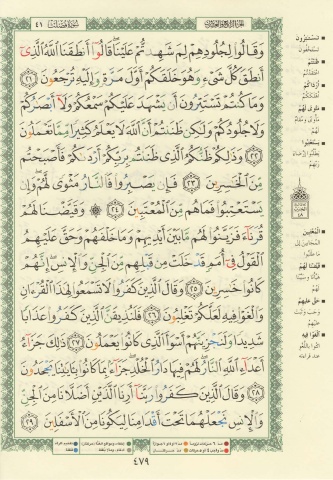 ٤١
سورة فصلت
الجزء الرابع والعشرون
وَقَالُوا لِجُلُودِهِمْ لِمَ شَهِدتُّمْ عَلَيْنَا قَالُوا أَنطَقَنَا اللَّهُ الَّذِي
أَنطَقَ كُلَّ شَيْءٍ وَهُوَ خَلَقَكُمْ أَوَّلَ مَرَّةٍ وَإِلَيْهِ تُرْجَعُونَ ٢١
وَمَا كُنتُمْ تَسْتَتِرُونَ أَن يَشْهَدَ عَلَيْكُمْ سَمْعُكُمْ وَلَا أَبْصَارُكُمْ
وَلَا جُلُودُكُمْ وَلَٰكِن ظَنَنتُمْ أَنَّ اللَّهَ لَا يَعْلَمُ كَثِيرًا مِّمَّا تَعْمَلُونَ
٢٢ وَذَٰلِكُمْ ظَنُّكُمُ الَّذِي ظَنَنتُم بِرَبِّكُمْ أَرْدَاكُمْ فَأَصْبَحْتُم
مِّنَ الْخَاسِرِينَ ٢٣ فَإِن يَصْبِرُوا فَالنَّارُ مَثْوًى لَّهُمْ وَإِن
يَسْتَعْتِبُوا فَمَا هُم مِّنَ الْمُعْتَبِينَ ٢٤ ۞ وَقَيَّضْنَا لَهُمْ
قُرَنَاءَ فَزَيَّنُوا لَهُم مَّا بَيْنَ أَيْدِيهِمْ وَمَا خَلْفَهُمْ وَحَقَّ عَلَيْهِمُ
الْقَوْلُ فِي أُمَمٍ قَدْ خَلَتْ مِن قَبْلِهِم مِّنَ الْجِنِّ وَالْإِنسِ إِنَّهُمْ
كَانُوا خَاسِرِينَ ٢٥ وَقَالَ الَّذِينَ كَفَرُوا لَا تَسْمَعُوا لِهَٰذَا الْقُرْآنِ
وَالْغَوْا فِيهِ لَعَلَّكُمْ تَغْلِبُونَ ٢٦ فَلَنُذِيقَنَّ الَّذِينَ كَفَرُوا عَذَابًا
شَدِيدًا وَلَنَجْزِيَنَّهُمْ أَسْوَأَ الَّذِي كَانُوا يَعْمَلُونَ ٢٧ ذَٰلِكَ جَزَاءُ
أَعْدَاءِ اللَّهِ النَّارُ لَهُمْ فِيهَا دَارُ الْخُلْدِ جَزَاءً بِمَا كَانُوا بِآيَاتِنَا يَجْحَدُونَ
٢٨ وَقَالَ الَّذِينَ كَفَرُوا رَبَّنَا أَرِنَا الَّذَيْنِ أَضَلَّانَا مِنَ الْجِنِّ
وَالْإِنسِ نَجْعَلْهُمَا تَحْتَ أَقْدَامِنَا لِيَكُونَا مِنَ الْأَسْفَلِينَ ٢٩
٤٧٩
تستترون
ظننتم
أرداكم
مثوى لهم
يستعتبوا
المعتبين
قيضنا لهم
حق عليهم
الغوا فيه